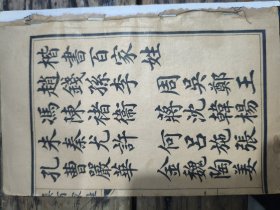 楷書百家姓
趙錢孫李周吳鄭王
馮陳褚衛蔣沈韓楊
朱秦尤許何呂施張
孔曹嚴華金魏陶姜